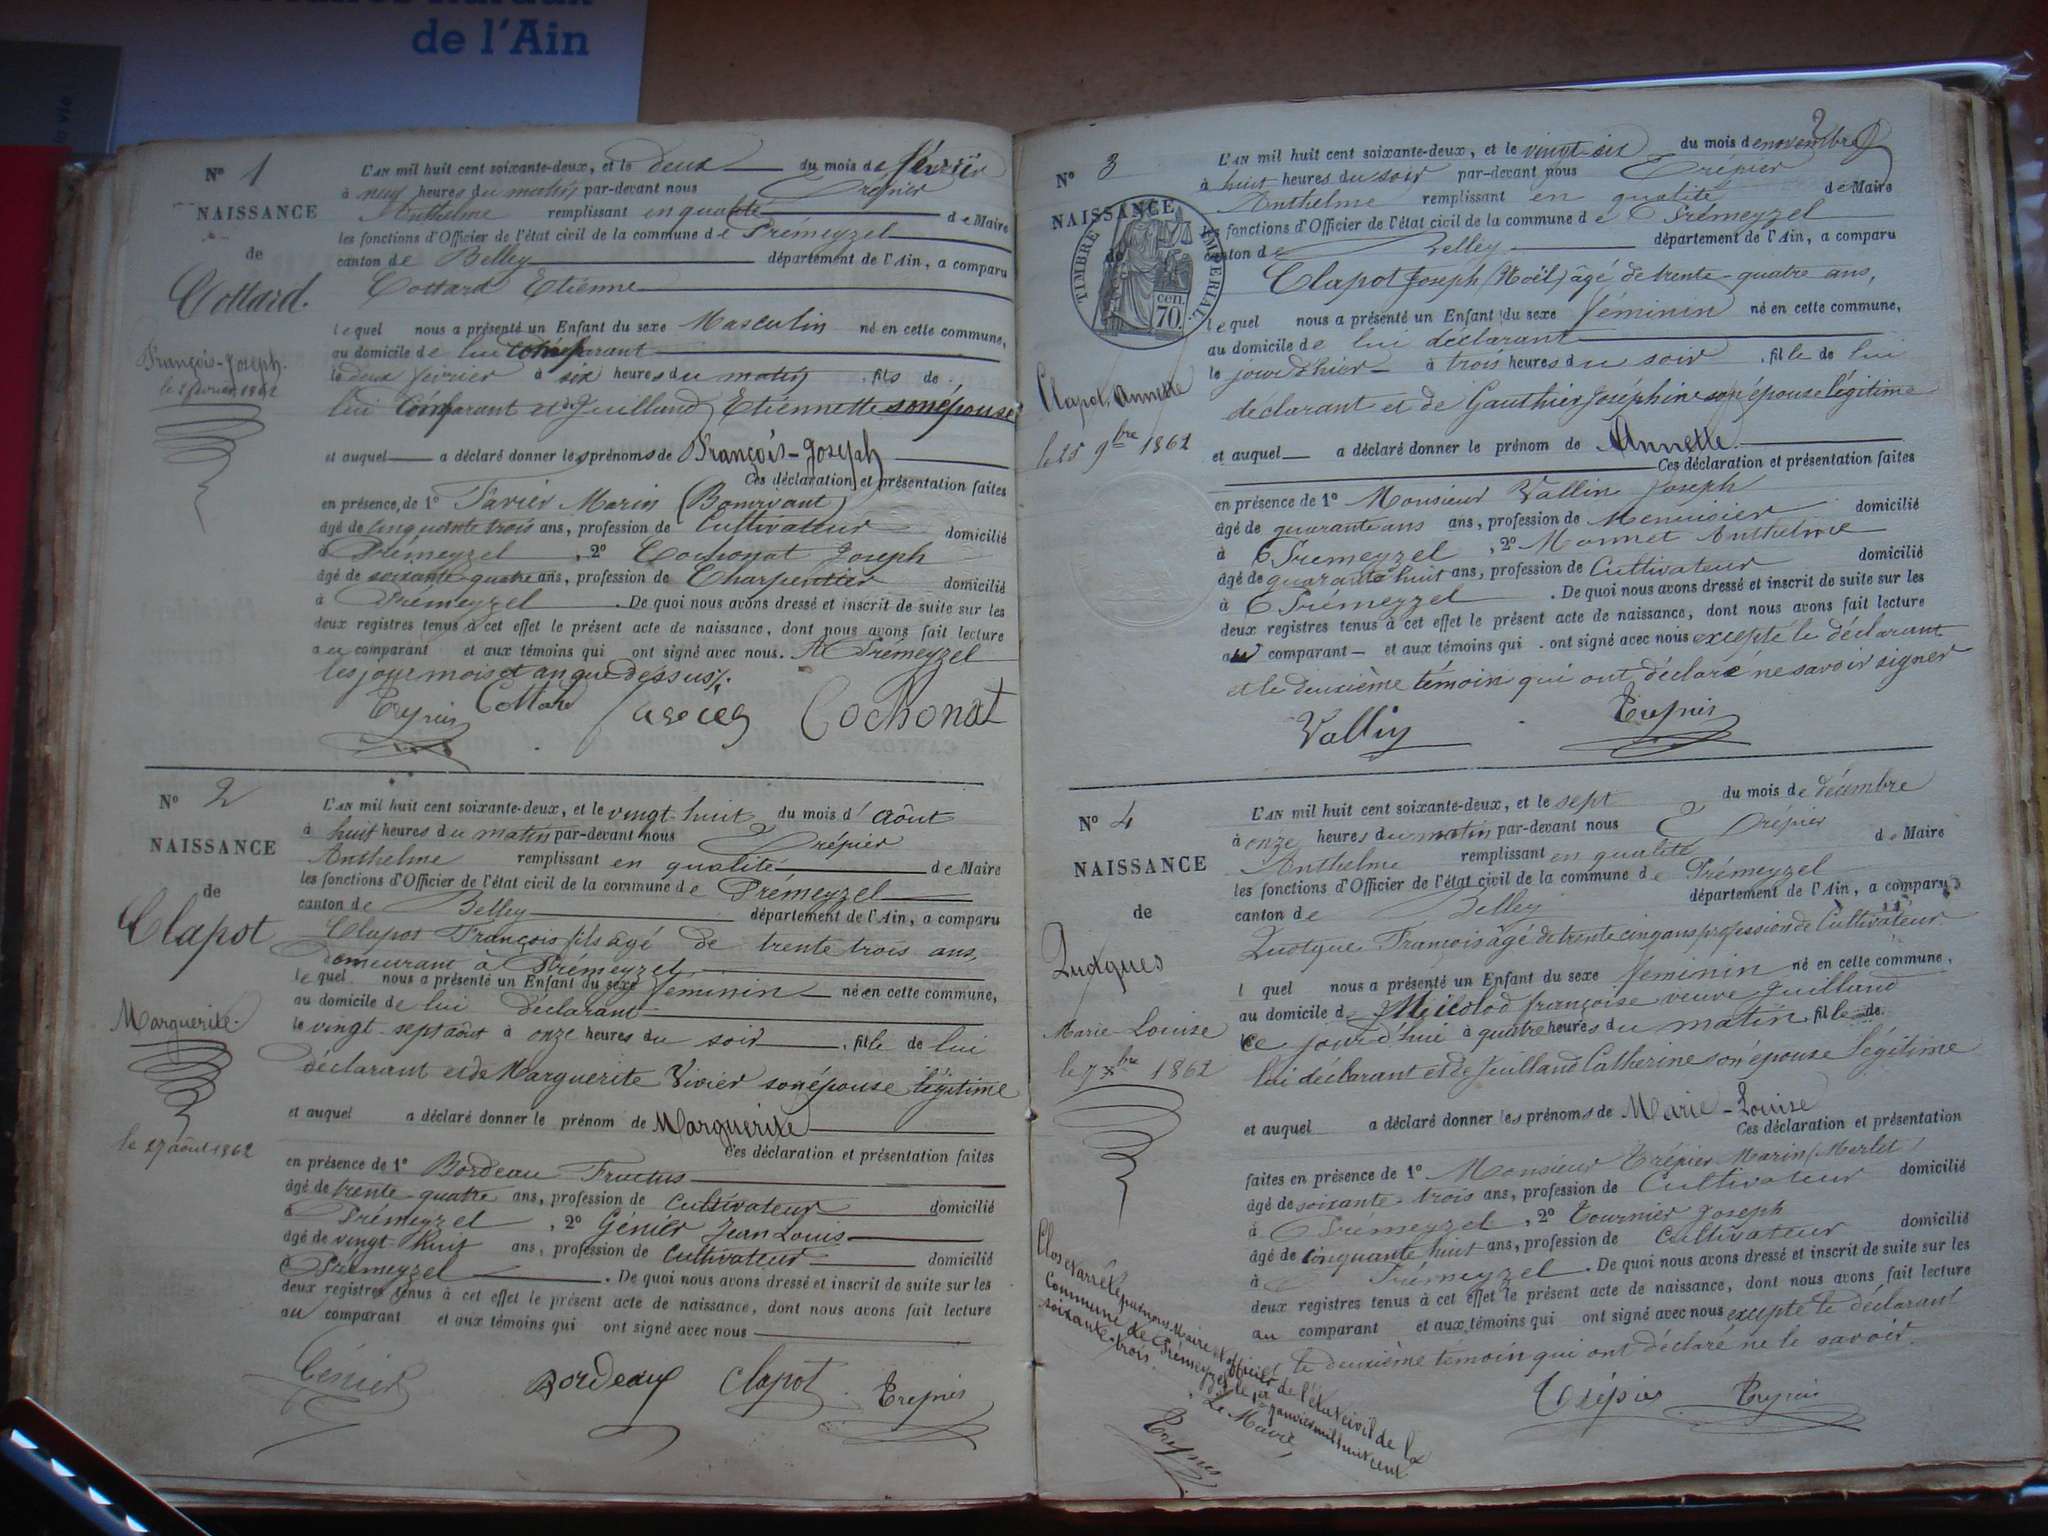 de l'Ain
la vie
Nº 1
NAISSANCE
de
Cottard.
François-Joseph.
le 2 février 1862
L'AN mil huit cent soixante-deux, et le deux du mois de février
à neuf heures du matin par-devant nous Trépier
Anthelme remplissant en qualité de Maire
les fonctions d'Officier de l'état civil de la commune de Prémeyzel
canton de Belley département de l'Ain, a comparu
Cottard Etienne
lequel nous a présenté un Enfant du sexe Masculin né en cette commune,
au domicile de lui comparant
le deux février à six heures du matin, fils de
lui comparant et de Juilland Etiennette son épouse
et auquel a déclaré donner les prénoms de François-Joseph
Ces déclaration et présentation faites
en présence de 1º Tavier Marin
âgé de cinquante trois ans, profession de Cultivateur domicilié
à Prémeyzel, 2º Cochonat Joseph
âgé de soixante quatre ans, profession de Charpentier domicilié
à Prémeyzel. De quoi nous avons dressé et inscrit de suite sur les
deux registres tenus à cet effet le présent acte de naissance, dont nous avons fait lecture
au comparant et aux témoins qui ont signé avec nous. A Prémeyzel
les jour mois et an que dessus
Trepier Cottard Cochonat
Nº 2
NAISSANCE
de
Clapot
Marguerite.
le 27 août 1862
L'AN mil huit cent soixante-deux, et le vingt-huit du mois d'août
à huit heures du matin par-devant nous Trépier
Anthelme remplissant en qualité de Maire
les fonctions d'Officier de l'état civil de la commune de Prémeyzel
canton de Belley département de l'Ain, a comparu
Clapot François fils âgé de trente trois ans,
demeurant à Prémeyzel
lequel nous a présenté un Enfant du sexe féminin né en cette commune,
au domicile de lui déclarant
le vingt-sept août à onze heures du soir, fille de lui
déclarant et de Marguerite Vivier son épouse légitime
et auquel a déclaré donner le prénom de Marguerite
Ces déclaration et présentation faites
en présence de 1º Bordeau Fructus
âgé de trente-quatre ans, profession de Cultivateur domicilié
à Prémeyzel, 2º Génier Jean Louis
âgé de vingt huit ans, profession de Cultivateur domicilié
à Prémeyzel. De quoi nous avons dressé et inscrit de suite sur les
deux registres tenus à cet effet le présent acte de naissance, dont nous avons fait lecture
au comparant et aux témoins qui ont signé avec nous
Génier Bordeau Clapot Trepier
2
Nº 3
NAISSANCE
de
TIMBRE IMPERIAL
70. cen.
Clapot, Annette
le 25 9bre 1862
L'AN mil huit cent soixante-deux, et le vingt-six du mois de novembre
à huit heures du soir par-devant nous Trépier
Anthelme remplissant en qualité de Maire
les fonctions d'Officier de l'état civil de la commune de Prémeyzel
canton de Belley département de l'Ain, a comparu
Clapot Joseph (Noël) âgé de trente-quatre ans,
lequel nous a présenté un Enfant du sexe féminin né en cette commune,
au domicile de lui déclarant
le jour d'hier à trois heures du soir, fille de lui
déclarant et de Gauthier Joséphine son épouse légitime
et auquel a déclaré donner le prénom de Annette
Ces déclaration et présentation faites
en présence de 1º Monsieur Vallin Joseph
âgé de quarante ans ans, profession de Menuisier domicilié
à Prémeyzel, 2º Monnet Anthelme
âgé de quarante huit ans, profession de Cultivateur domicilié
à Prémeyzel. De quoi nous avons dressé et inscrit de suite sur les
deux registres tenus à cet effet le présent acte de naissance, dont nous avons fait lecture
au comparant et aux témoins qui ont signé avec nous excepté le déclarant
et le deuxième témoin qui ont déclaré ne savoir signer
Vallin Trepier
Nº 4
NAISSANCE
de
Ludques
Marie-Louise
le 7 xbre 1862
L'AN mil huit cent soixante-deux, et le sept du mois de décembre
à onze heures du matin par-devant nous Trépier
Anthelme remplissant en qualité de Maire
les fonctions d'Officier de l'état civil de la commune de Prémeyzel
canton de Belley département de l'Ain, a comparu
François âgé de trente cinq ans profession de Cultivateur
l quel nous a présenté un Enfant du sexe féminin né en cette commune,
au domicile de françoise veuve Juilland
ce jour d'hui à quatre heures du matin, fille de
lui déclarant et de Juilland Catherine son épouse légitime
et auquel a déclaré donner les prénoms de Marie-Louise
Ces déclaration et présentation
faites en présence de 1º Monsieur Trépier Marin (Merlet)
âgé de soixante-trois ans, profession de Cultivateur domicilié
à Prémeyzel, 2º Tournier Joseph
âgé de cinquante huit ans, profession de Cultivateur domicilié
à Prémeyzel. De quoi nous avons dressé et inscrit de suite sur les
deux registres tenus à cet effet le présent acte de naissance, dont nous avons fait lecture
au comparant et aux témoins qui ont signé avec nous excepté le déclarant
et le deuxième témoin qui ont déclaré ne le savoir.
Trépier Trepier
Clos et arrêté par nous Maire et officier de l'état civil de la
commune de Prémeyzel le 1er janvier mil huit cent
soixante-trois.
Le Maire,
Trepier